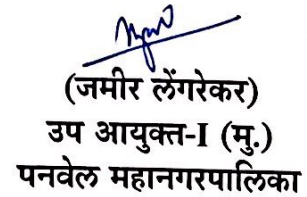 (जमीर लेंगरेकर)
उप आयुक्त-I (मु.)
पनवेल महानगरपालिका